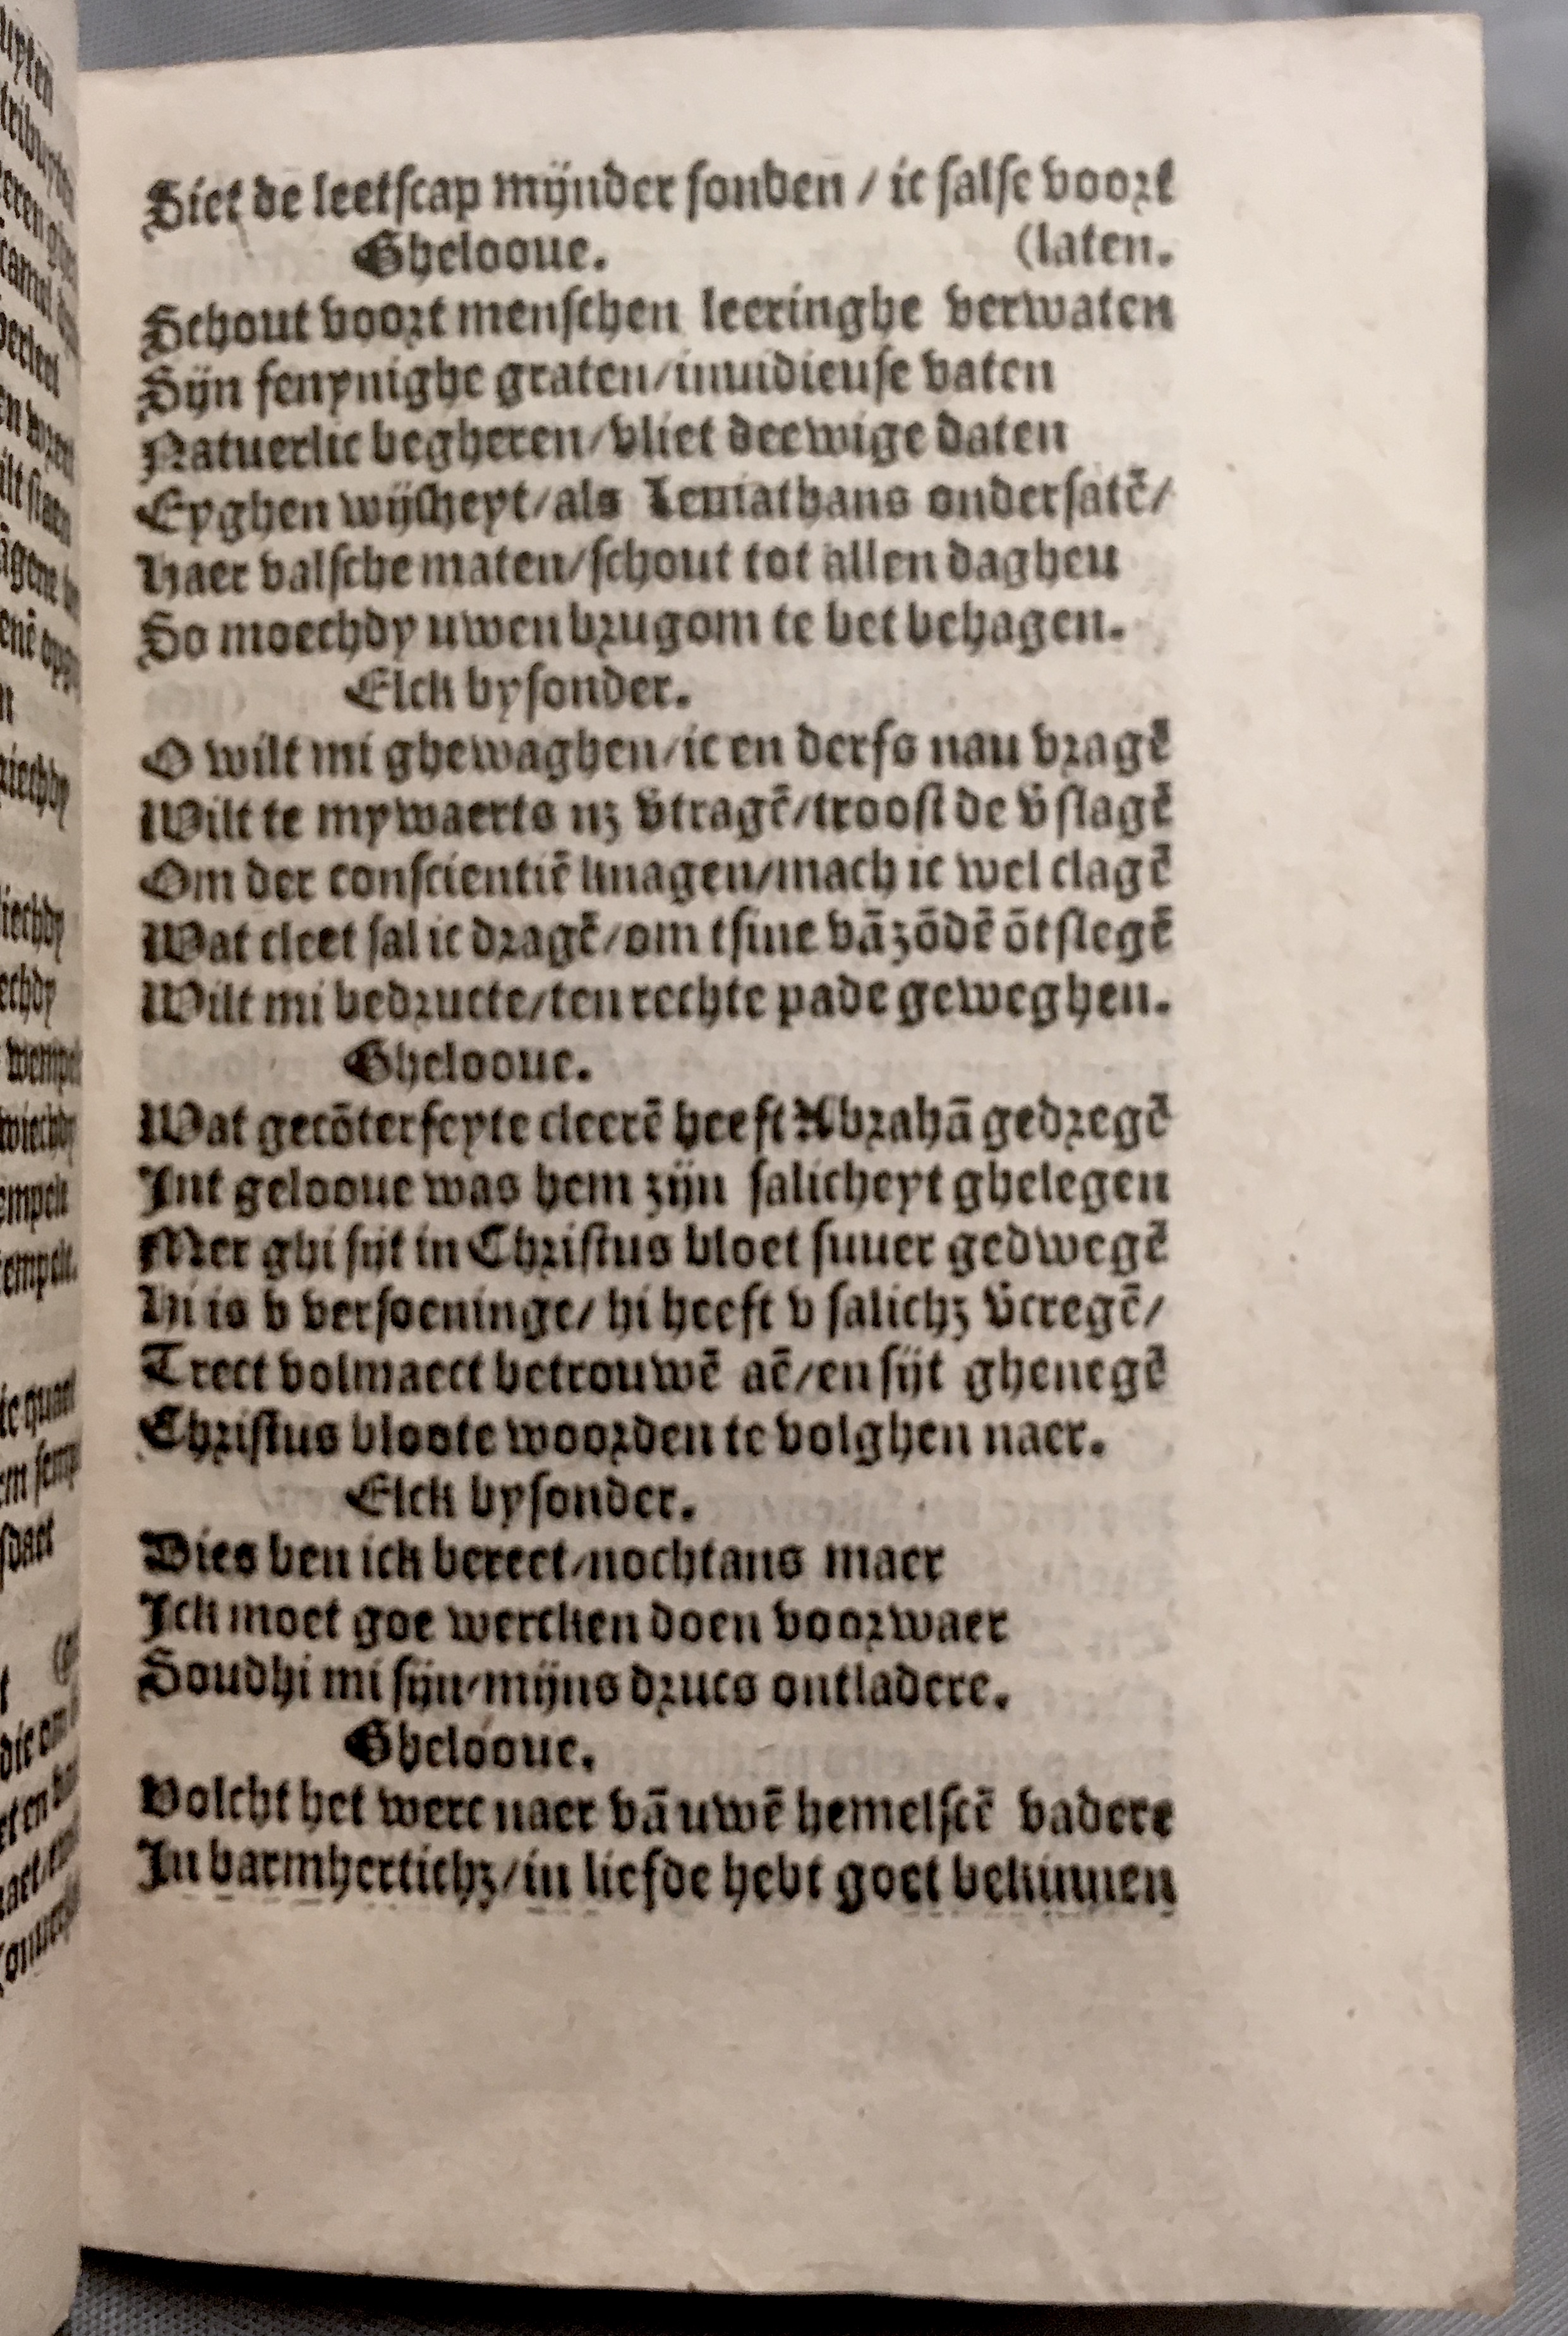 Siet de leetſcap mijnder ſonden / ic ſalſe voort
Ghelooue. (laten.
Schout voort menſchen leeringhe verwaten
Sijn fenynighe graten/inuidieuſe vaten
Natuerlic begheren/vliet deewige daten
Eyghen wijſheyt/als Leuiathans onderſatē/
Haer valſche maten/ſchout tot allen daghen
So moechdy uwen brugom te bet behagen.
Elck byſonder.
O wilt mi ghewaghen/ic en derfs nau vragē
Wilt te mywaerts nꝫ v̄tragē/trooſt de v̄ſlagē
Om der conſcientiē knagen/mach ic wel clagē
Wat cleet ſal ic dragē/om tſine vāzōdē ōtſlegē
Wilt mi bedructe/ten rechte pade geweghen.
Ghelooue.
Wat gecōterfeyte cleerē heeft Abrahā gedregē
Int gelooue was hem zijn ſalicheyt ghelegen
Mer ghi ſijt in Chriſtus bloet ſuuer gedwegē
Hi is v verſoeninge/ hi heeft v ſalichꝫ v̄cregē/
Trect volmaect betrouwē aē/en ſijt ghenegē
Chriſtus bloote woorden te volghen naer.
Elck byſonder.
Dies ben ick bereet/nochtans maer
Ick moet goe wercken doen voorwaer
Soudhi mi ſijn/mijns drucs ontladere.
Ghelooue.
Volcht het werc naer vā uwē hemelſcē vadere
In barmhertichꝫ/in liefde hebt goet bekinnen